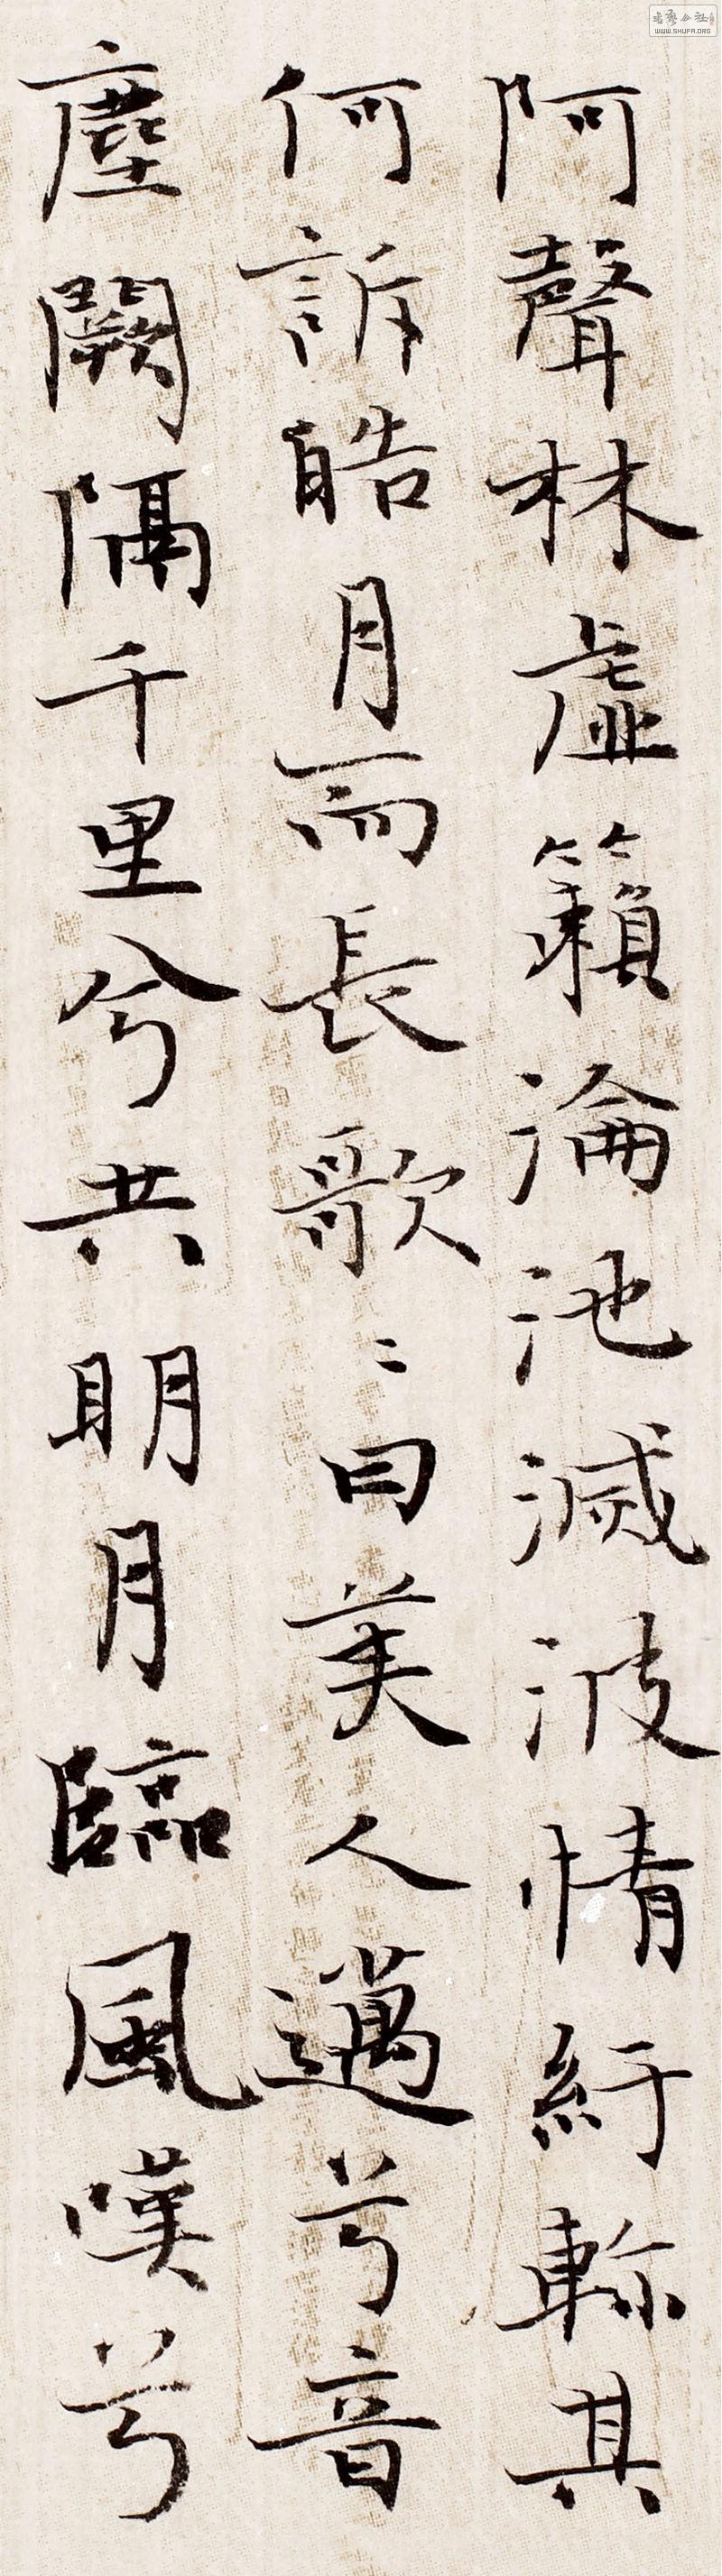 阿聲林虛籟淪池滅波情紆軫其
何訴皓月而長歌〻曰美人邁兮音
塵闕隔千里兮共明月臨風嘆兮
WWW.SHUFA.ORG